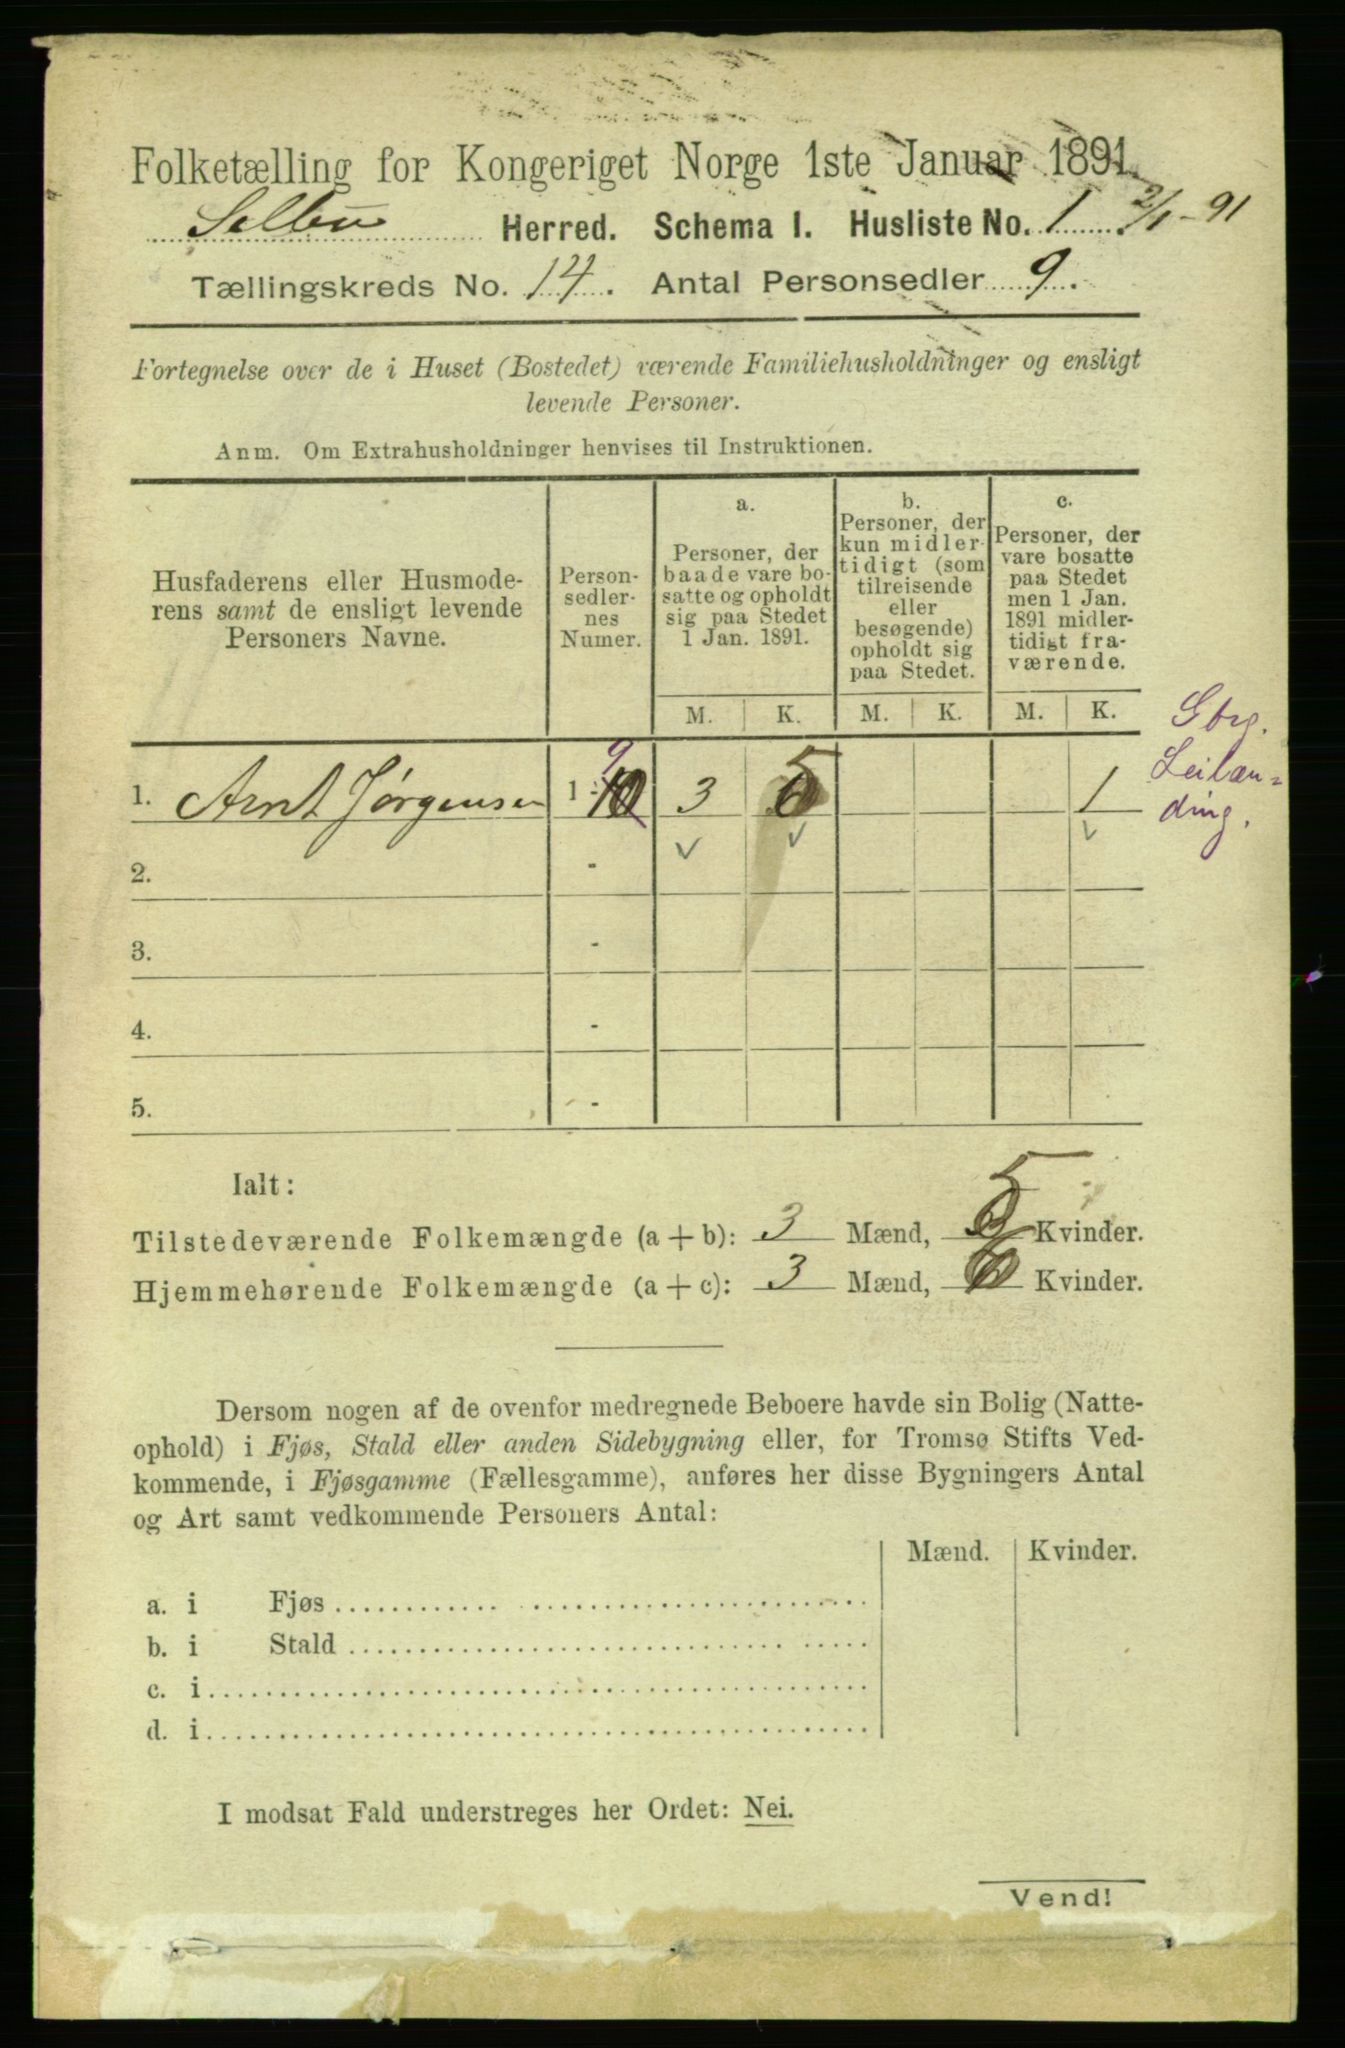 Folketælling for Kongeriget Norge 1ste Januar 1891.
Selbu Herred. Schema I. Husliste No. 1. 2/1-91
Tællingskreds No. 14. Antal Personsedler 9.
Fortegnelse over de i Huset (Bostedet) værende Familiehusholdninger og ensligt
levende Personer.
Anm. Om Extrahusholdninger henvises til Instruktionen.
Husfaderens eller Husmode-
rens samt de ensligt levende
Personers Navne.
Person-
sedler-
nes
Numer.
a.
Personer, der
baade vare bo-
satte og opholdt
sig paa Stedet
1 Jan. 1891.
b.
Personer, der
kun midler-
tidigt (som
tilreisende
eller
besøgende)
opholdt sig
paa Stedet.
c.
Personer, der
vare bosatte
paa Stedet
men 1 Jan.
1891 midler-
tidigt fra-
værende.
M. K. M. K. M. K.
Gbrg.
Leilæn-
ding.
9
1. Arnt Jørgensen 1-10 3 5 1
2. -
3. -
4. -
5. -
Ialt:
Tilstedeværende Folkemængde (a + b): 3 Mænd, 5 Kvinder.
Hjemmehørende Folkemængde (a + c): 3 Mænd, 6 Kvinder.
Dersom nogen af de ovenfor medregnede Beboere havde sin Bolig (Natte-
ophold) i Fjøs, Stald eller anden Sidebygning eller, for Tromsø Stifts Ved-
kommende, i Fjøsgamme (Fællesgamme), anføres her disse Bygningers Antal
og Art samt vedkommende Personers Antal:
Mænd. Kvinder.
a. i Fjøs
b. i Stald
c. i
d. i
I modsat Fald understreges her Ordet: Nei.
Vend!